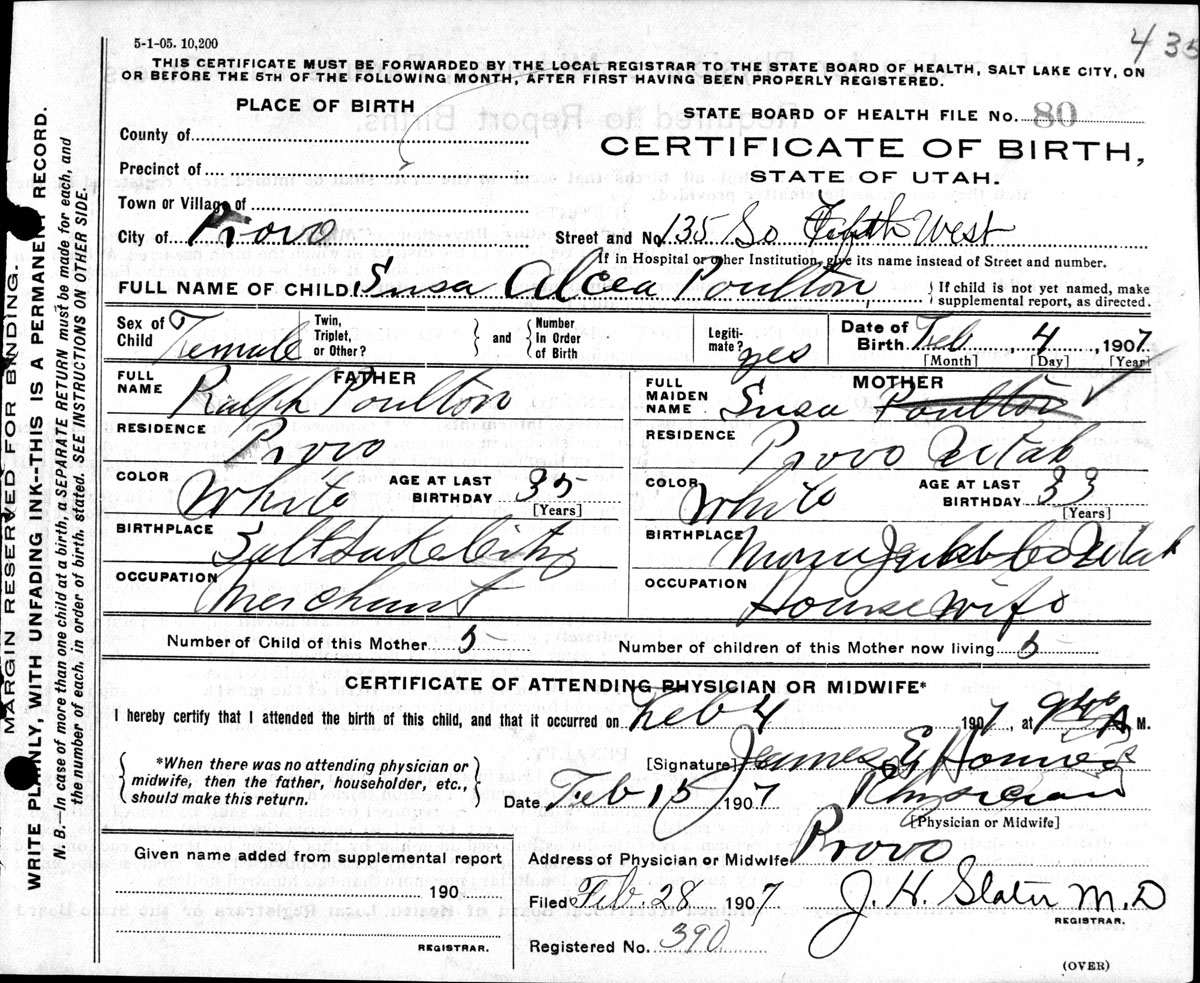 435
5-1-05. 10,200
THIS CERTIFICATE MUST BE FORWARDED BY THE LOCAL REGISTRAR TO THE STATE BOARD OF HEALTH, SALT LAKE CITY, ON
OR BEFORE THE 5TH OF THE FOLLOWING MONTH, AFTER FIRST HAVING BEEN PROPERLY REGISTERED.
MARGIN RESERVED FOR BINDING.
WRITE PLAINLY, WITH UNFADING INK--THIS IS A PERMANENT RECORD.
N. B.—In case of more than one child at a birth, a SEPARATE RETURN must be made for each, and
the number of each, in order of birth, stated. SEE INSTRUCTIONS ON OTHER SIDE.
PLACE OF BIRTH
County of
Precinct of
Town or Village of
City of Provo
STATE BOARD OF HEALTH FILE No. 80
CERTIFICATE OF BIRTH,
STATE OF UTAH.
Street and No. 135 So Fifth West
If in Hospital or other Institution, give its name instead of Street and number.
FULL NAME OF CHILD Susa Alcea Poulton
If child is not yet named, make
supplemental report, as directed.
Sex of Child Female
Twin, Triplet, or Other?
and
Number In Order of Birth
Legitimate? yes
Date of Birth Feb 4, 1907
[Month] [Day] [Year]
FATHER
FULL NAME Ralph Poulton
RESIDENCE Provo
COLOR White
AGE AT LAST BIRTHDAY 35
[Years]
BIRTHPLACE Salt Lake City
OCCUPATION Merchant
MOTHER
FULL MAIDEN NAME Susa Poulton
RESIDENCE Provo Utah
COLOR White
AGE AT LAST BIRTHDAY 33
[Years]
BIRTHPLACE Utah
OCCUPATION Housewife
Number of Child of this Mother 5
Number of children of this Mother now living 5
CERTIFICATE OF ATTENDING PHYSICIAN OR MIDWIFE*
I hereby certify that I attended the birth of this child, and that it occurred on Feb 4 1907, at A M.
*When there was no attending physician or
midwife, then the father, householder, etc.,
should make this return.
[Signature] James E
Date Feb 15 1907 Physician
[Physician or Midwife]
Given name added from supplemental report
190
REGISTRAR.
Address of Physician or Midwife Provo
Filed Feb. 28 1907 J. H. Slater M.D
REGISTRAR.
Registered No. 390
(OVER)